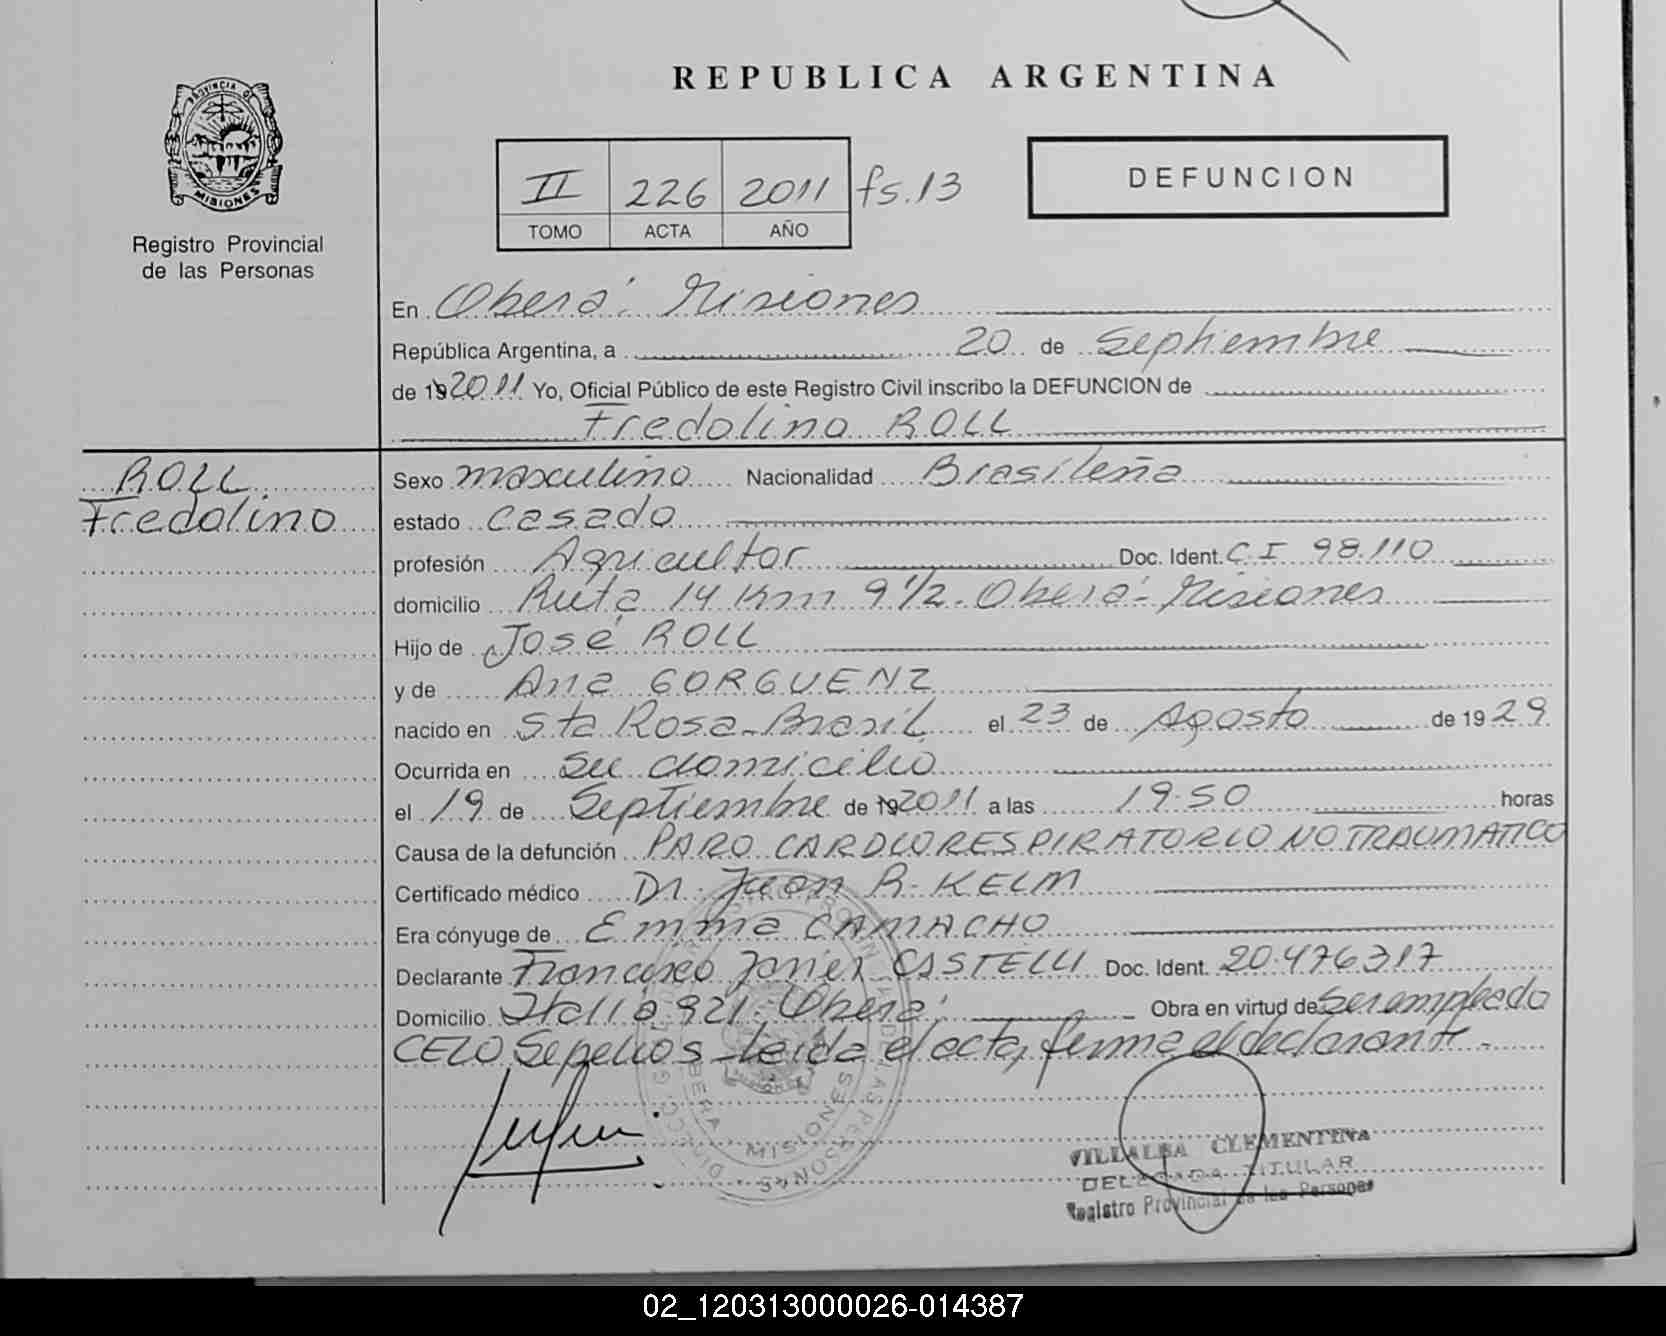 REPUBLICA ARGENTINA
PROVINCIA DE
MISIONES
Registro Provincial
de las Personas
II 226 2011 fs. 13
TOMO ACTA AÑO
DEFUNCION
En Oberá: Misiones
República Argentina, a 20 de Septiembre
de 19 2011 Yo, Oficial Público de este Registro Civil inscribo la DEFUNCION de
Fredolino ROLL
ROLL
Fredolino
Sexo masculino Nacionalidad Brasileña
estado casado
profesión Agricultor Doc. Ident. C.I 98.110
domicilio Ruta 14 Km 9 1/2. Oberá- Misiones
Hijo de José ROLL
y de Ana GORGUENZ
nacido en Sta Rosa-Brasil el 23 de Agosto de 19 29
Ocurrida en su domicilio
el 19 de Septiembre de 19 2011 a las 19:50 horas
Causa de la defunción PARO CARDIORESPIRATORIO NO TRAUMATICO
Certificado médico Dr. Juan R. KELM
Era cónyuge de Emma CAMACHO
Declarante Francisco Javier CASTELLI Doc. Ident. 20.476317
Domicilio Italia 921. Oberá Obra en virtud de Ser empleado
CELO Sepelios-Leida el acta, firma el declarante.
OBERA MISIONES
VILLALBA CLEMENTINA
DELEGADA TITULAR
Registro Provincial de las Personas
02_120313000026-014387